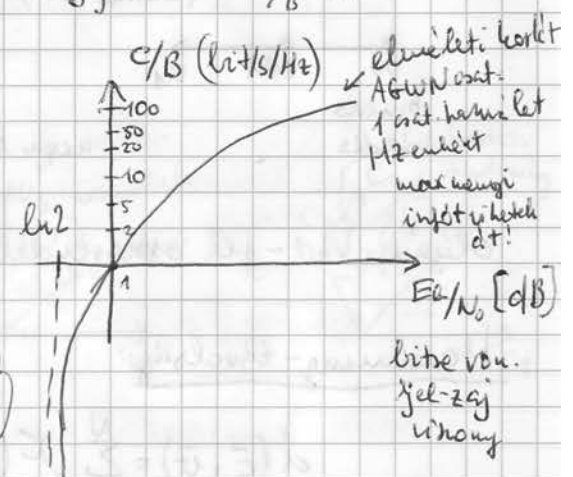 C/B (bit/s/Hz)
elméleti korlát
AGWN csat.
1 csat. használat
Hz enként
max mennyi
infót vihetek
át!
100
50
20
10
5
2
1
ln2
Eb/N₀ [dB]
bitre von.
jel-zaj
viszony